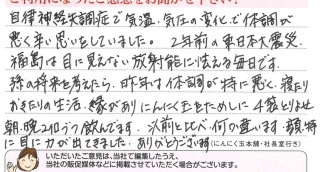 ご利用になったご感想をお聞かせ下さい！
自律神経失調症で気温、気圧の変化で体調が
悪く辛い思いをしていました。2年前の東日本大震災、
福島は目に見えない放射能に怯える毎日です。
孫の将来を考えたら、昨年は体調が特に悪く、寝たり
おきたりの生活。縁がありにんにく玉をためしに4袋とりよせ
朝、晩2粒づつ飲んでます。以前と比べ何か違います。顔、特
に目に力が出てきました。ありがとうございます
(にんにく玉本舗・社長室行き)
いただいたご意見は、当社で編集したうえ、
当社の販促媒体などに掲載させていただく場合がございます。